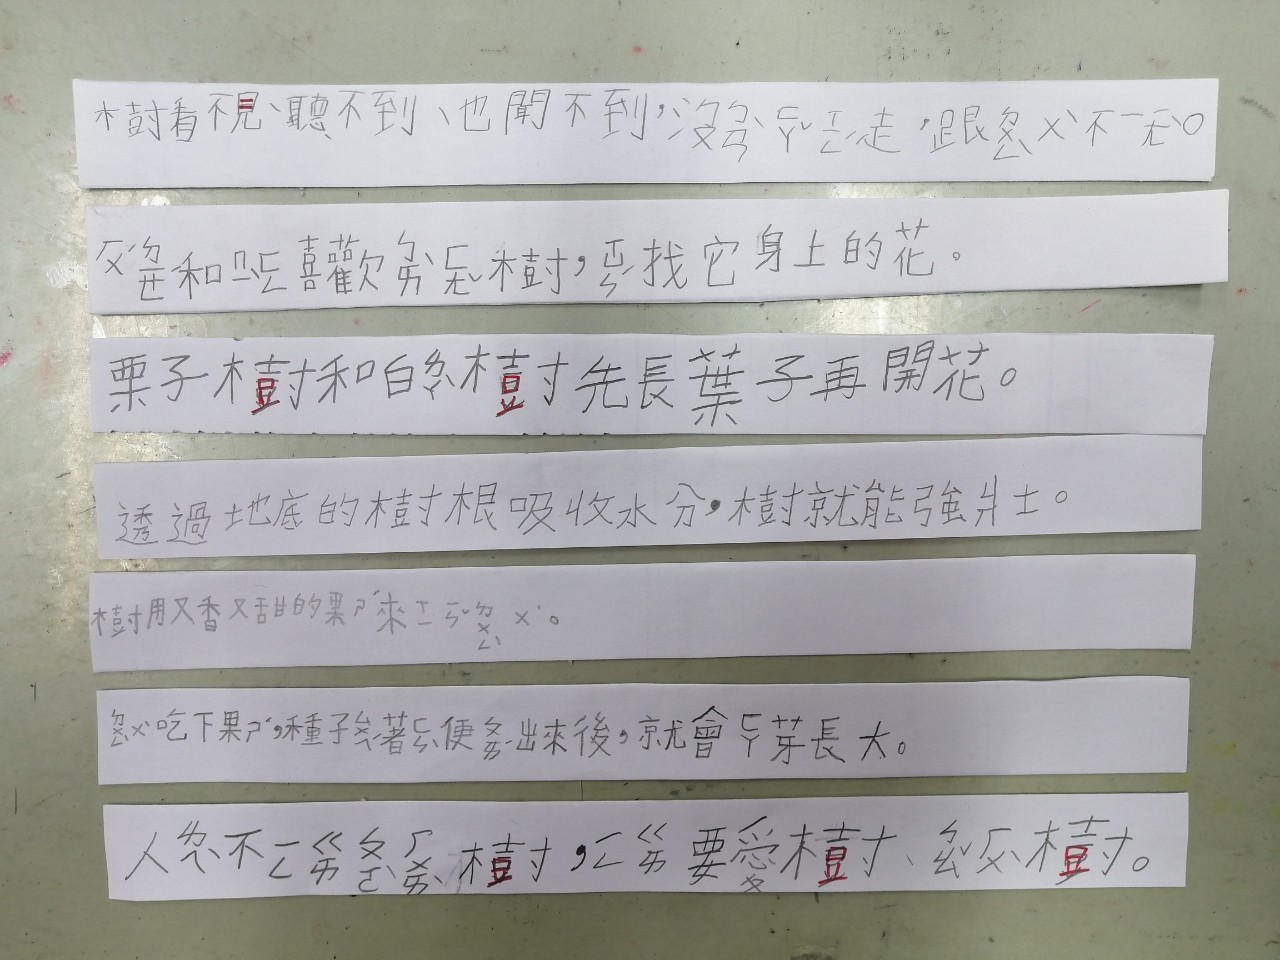 樹看不見、聽不到、也聞不到,沒ㄅㄢˋㄈㄚˇ走,跟ㄉㄨㄥˋㄨˋ不一ㄧㄤˋ。
和喜歡樹,找它身上的花。
栗子樹和白樹先長葉子再開花。
透過地底的樹根吸收水分,樹就能強壯。
樹用又香又甜的果ㄕˊ來ㄒㄧㄧㄣˇㄉㄨㄥˋㄨˋ。
ㄉㄨㄥˋㄨˋ吃下果ㄕˊ,種子著ㄈㄣˋ便出來後,就會ㄈㄚ芽長大。
人不ㄧㄥㄍㄞ樹,ㄧㄥㄍㄞ要愛樹、樹。